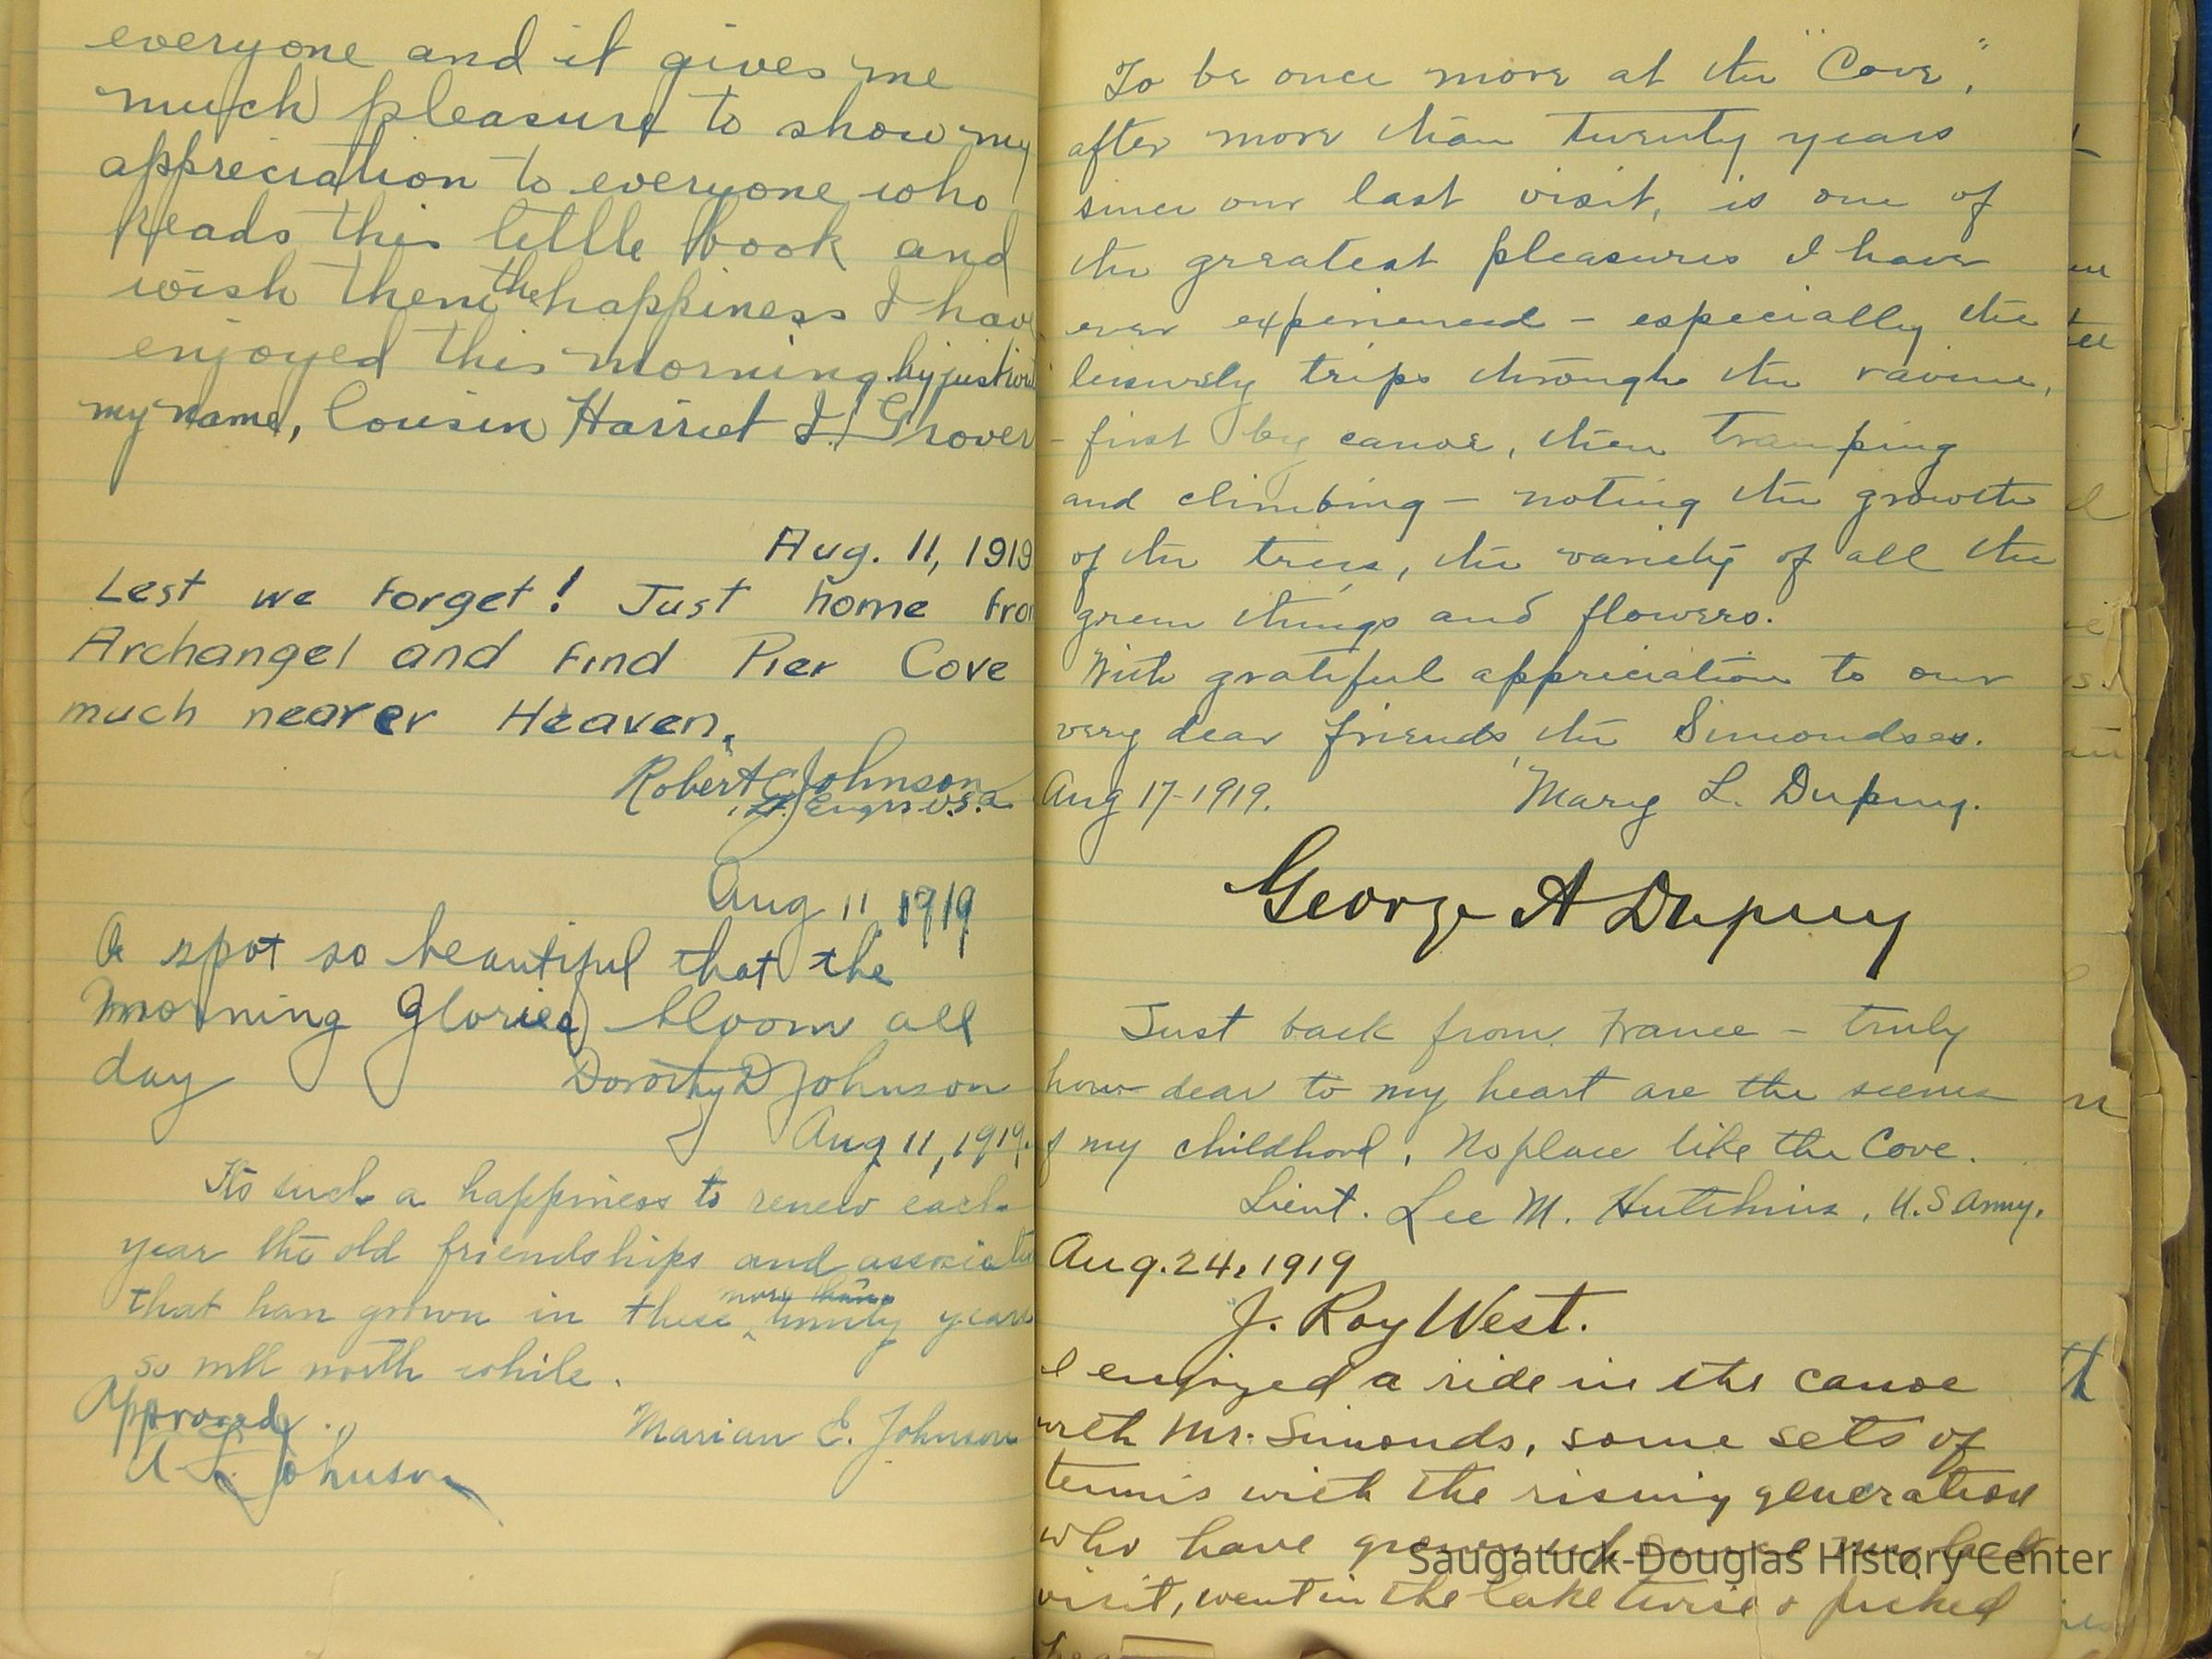 everyone and it gives me
much pleasure to show my
appreciation to everyone who
reads this little book and
wish them the happiness I have
enjoyed this morning by just
my name, Cousin Harriet I. Grover
Aug. 11, 1919
Lest we forget! Just home from
Archangel and find Pier Cove
much nearer Heaven.
Robert C Johnson
Engrs U.S.A
Aug 11 1919
A spot so beautiful that the
Morning Glories bloom all
day
Dorothy D Johnson
Aug 11, 1919.
It's such a happiness to renew each
year the old friendships and
more than
that have grown in these twenty years
so well worth while.
Approved.
Marian E. Johnson
A Johnson
To be once more at the "Cove",
after more than twenty years
since our last visit, is one of
the greatest pleasures I have
ever experienced - especially the
leisurely trips through the ravine,
- first by canoe, then tramping
and climbing - noting the growth
of the trees, the variety of all the
green things and flowers.
With grateful appreciation to our
very dear friends, the Simondses.
Aug 17-1919. Mary L. Dupuy.
George A Dupuy
Just back from France - truly
how dear to my heart are the scenes
of my childhood. No place like the Cove.
Lieut. Lee M. Hutchins, U.S Army.
Aug. 24, 1919
J. Roy West.
I enjoyed a ride in the canoe
with Mr. Simonds, some sets of
tennis with the rising generation
who have grown up since my last
visit, went in the lake twice & picked
Saugatuck-Douglas History Center